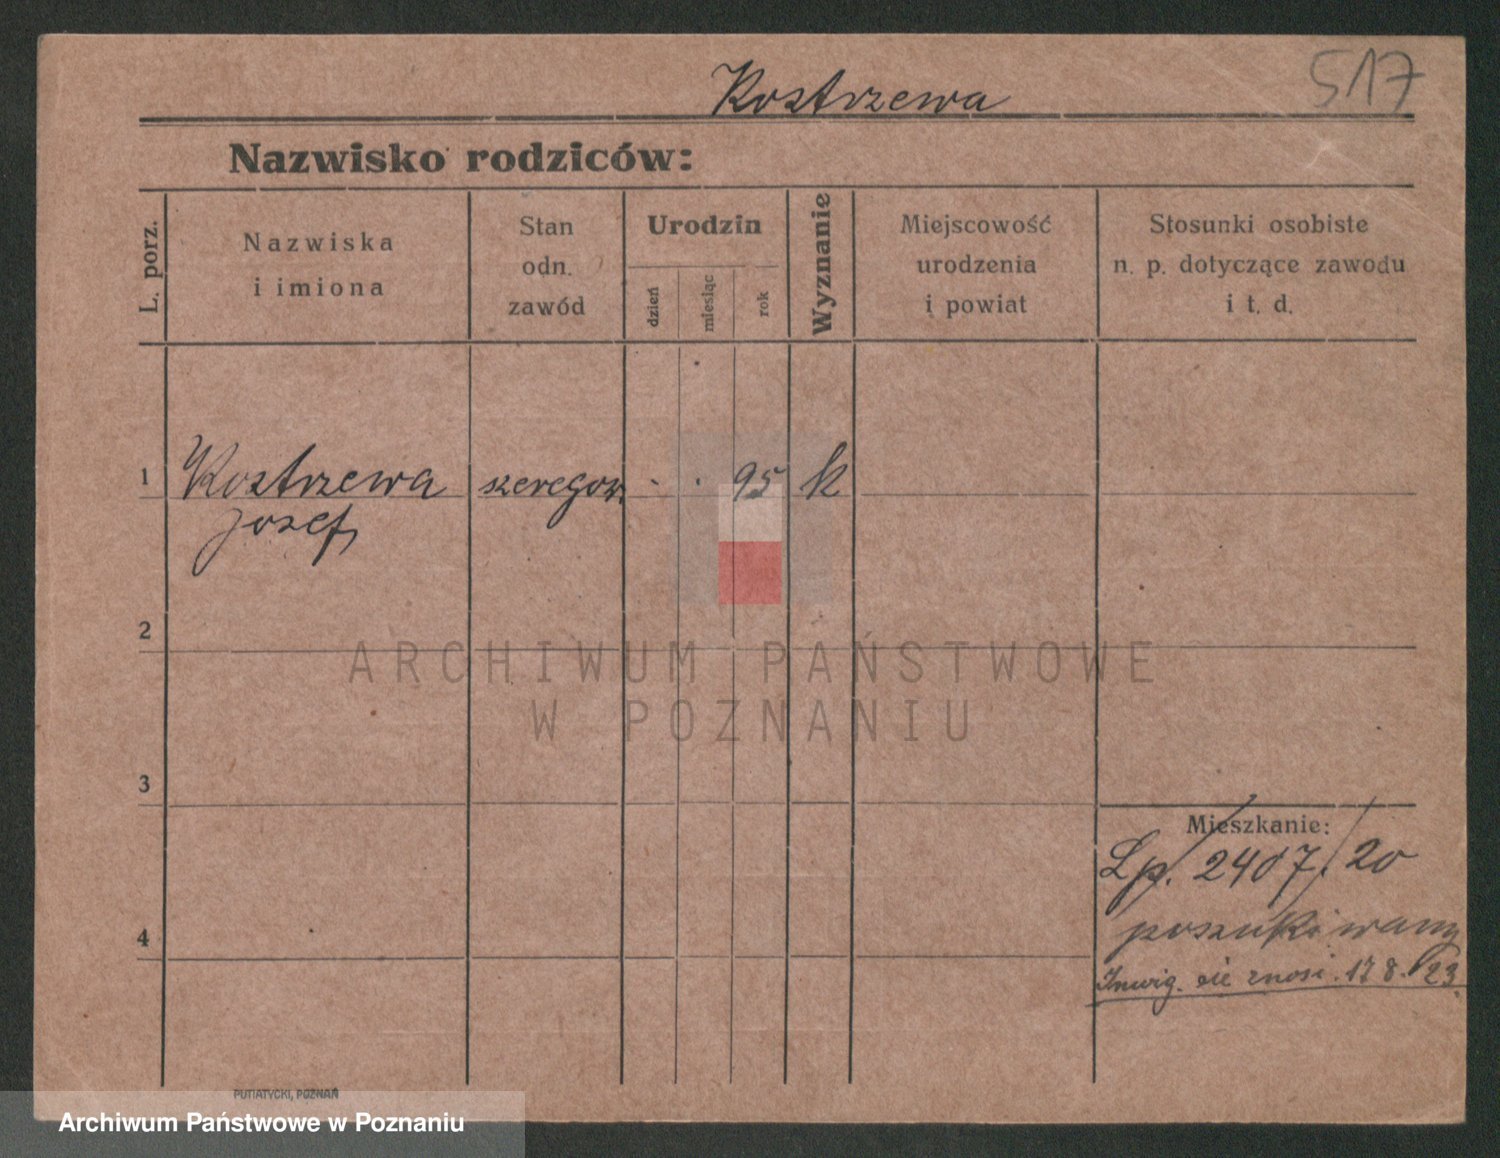 Kostrzewa
517
Nazwisko rodziców:
L. porz.
Nazwiska
i imiona
Stan
odn.
zawód
Urodzin
dzień
miesiąc
rok
Wyznanie
Miejscowość
urodzenia
i powiat
Stosunki osobiste
n. p. dotyczące zawodu
i t. d.
1
Kostrzewa
Josef
szeregow.
95
k
2
ARCHIWUM PAŃSTWOWE
W POZNANIU
3
Mieszkanie:
Lp. 2407/20
poszukiwany
Inwig. sie znosi. 17 8. 23.
4
PUTIATYCKI, POZNAŃ
Archiwum Państwowe w Poznaniu